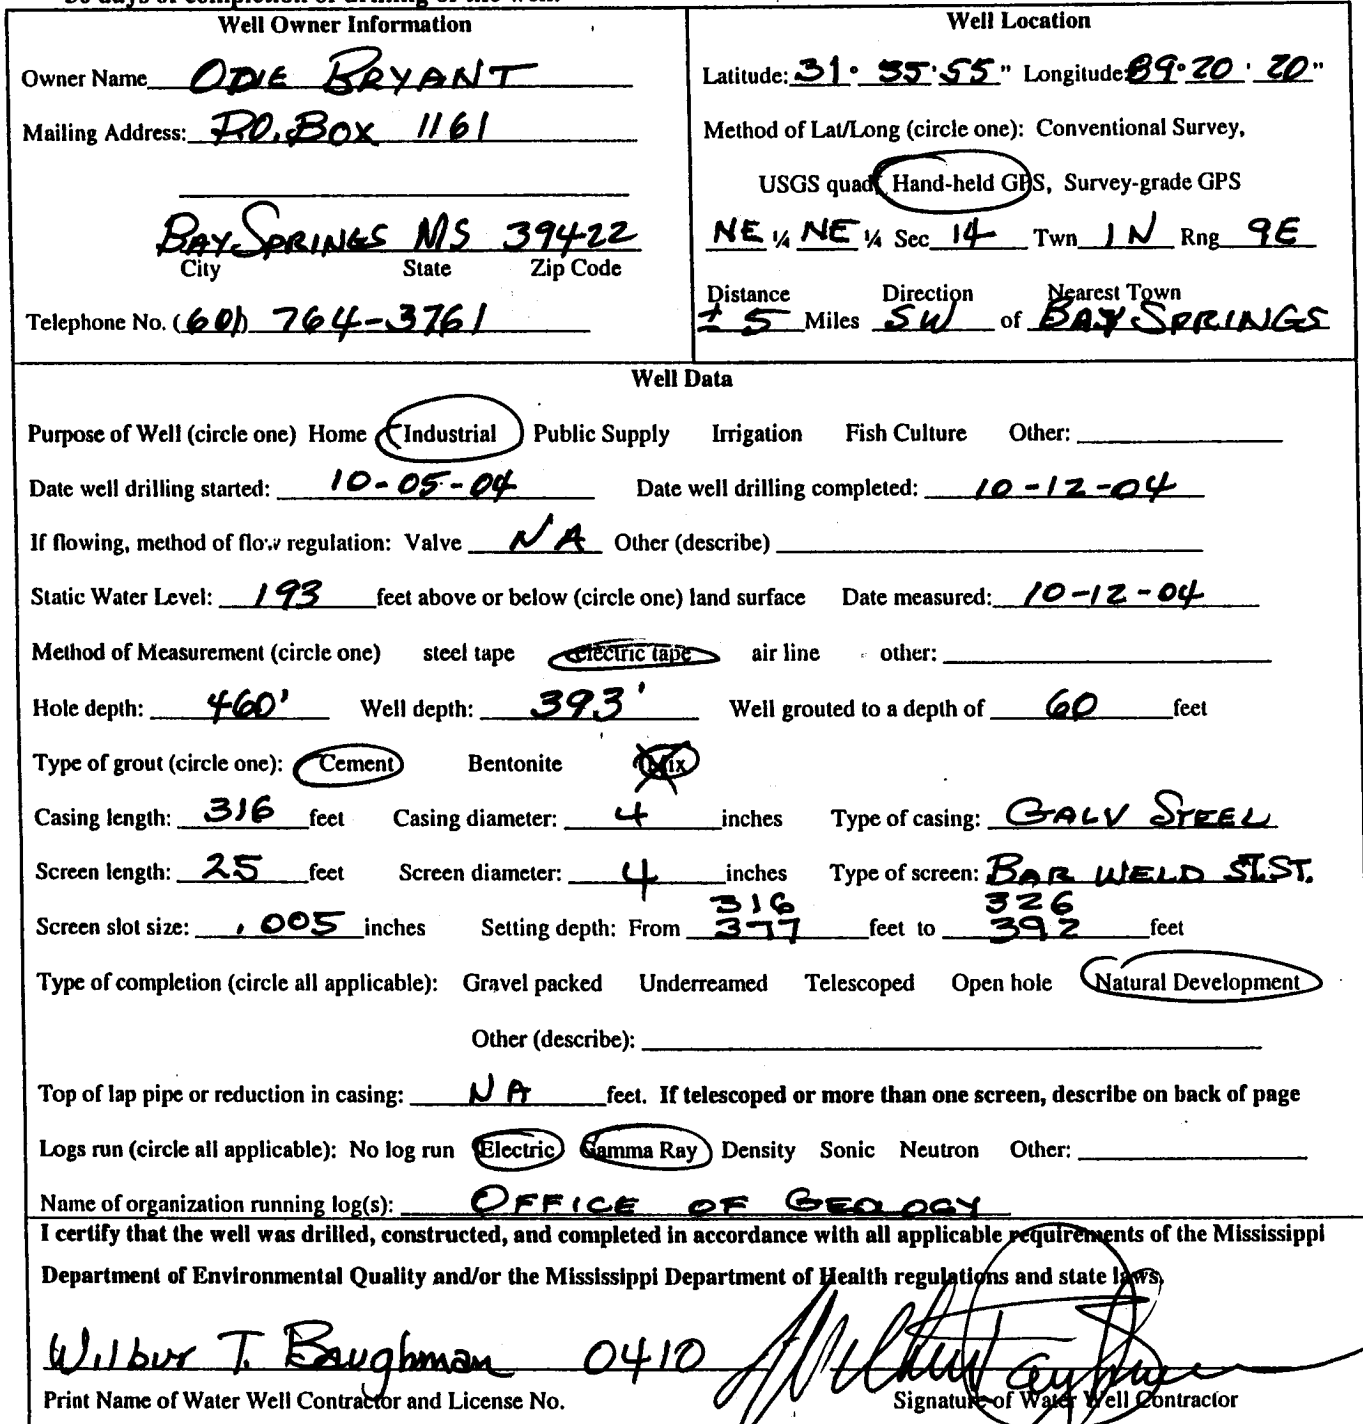 Well Owner Information
Owner Name ODIE BRYANT
Mailing Address: P.O. BOX 1161
BAY SPRINGS MS 39422
City State Zip Code
Telephone No. (601) 764-3761
Well Location
Latitude: 31° 35' 55" Longitude: 89° 20' 20"
Method of Lat/Long (circle one): Conventional Survey,
USGS quad, Hand-held GPS, Survey-grade GPS
NE ¼ NE ¼ Sec 14 Twn 1N Rng 9E
Distance Direction Nearest Town
± 5 Miles SW of BAY SPRINGS
Well Data
Purpose of Well (circle one) Home Industrial Public Supply Irrigation Fish Culture Other:
Date well drilling started: 10-05-04 Date well drilling completed: 10-12-04
If flowing, method of flow regulation: Valve NA Other (describe)
Static Water Level: 193 feet above or below (circle one) land surface Date measured: 10-12-04
Method of Measurement (circle one) steel tape electric tape air line other:
Hole depth: 460' Well depth: 393' Well grouted to a depth of 60 feet
Type of grout (circle one): Cement Bentonite Mix
Casing length: 316 feet Casing diameter: 4 inches Type of casing: GALV STEEL
Screen length: 25 feet Screen diameter: 4 inches Type of screen: BAR WELD ST.ST.
316 326
Screen slot size: .005 inches Setting depth: From 377 feet to 392 feet
Type of completion (circle all applicable): Gravel packed Underreamed Telescoped Open hole Natural Development
Other (describe):
Top of lap pipe or reduction in casing: NA feet. If telescoped or more than one screen, describe on back of page
Logs run (circle all applicable): No log run Electric Gamma Ray Density Sonic Neutron Other:
Name of organization running log(s): OFFICE OF GEOLOGY
I certify that the well was drilled, constructed, and completed in accordance with all applicable requirements of the Mississippi
Department of Environmental Quality and/or the Mississippi Department of Health regulations and state laws.
Wilbur T. Baughman 0410
Print Name of Water Well Contractor and License No. Signature of Water Well Contractor